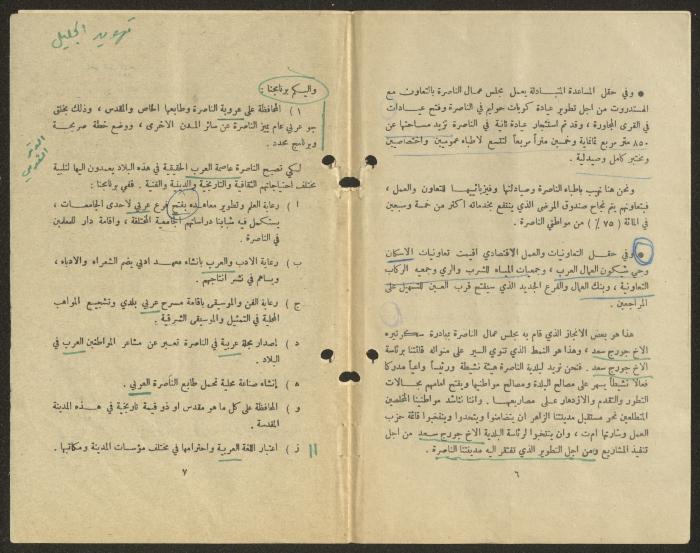 ● وفي حقل المساعدة المتبادلة يعمل مجلس عمال الناصرة بالتعاون مع
الهستدروت من اجل تطوير عيادة كوبات حوليم في الناصرة وفتح عيادات
في القرى المجاورة ، وقد تم استئجار عيادة ثانية في الناصرة تزيد مساحتها عن
٨٥٠ متر مربع ثمانماية وخمسين متراً مربعاً لتتسع لاطباء عموميين واختصاصيين
ومختبر كامل وصيدلية .
ونحن هنا نهيب باطباء الناصرة وصيادلتها وفيزيائييها للتعاون والعمل ،
فبتعاونهم يتم نجاح صندوق المرضى الذي ينتفع بخدماته اكثر من خمسة وسبعين
في المائة ( ٧٥ ٪ ) من مواطني الناصرة .
● وفي حقل التعاونيات والعمل الاقتصادي اقيمت تعاونيات الاسكان
وحي شيكون العمال العرب ، وجمعيات المياه للشرب والري وجمعيه الركاب
التعاونية ، وبنك العمال والفرع الجديد الذي سيفتح قرب العين للتسهيل على
المراجعين .
هذا هو بعض الانجاز الذي قام به مجلس عمال الناصرة بمبادرة سكرتيره
الاخ جورج سعد ، وهذا هو النمط الذي تنوي السير على منواله قائمتنا برئاسة
الاخ جورج سعد . فنحن نريد لبلدية الناصرة هيئة نشيطة ورئيساً واعياً مدركا
فعالا نشيطاً يسهر على مصالح البلدة ومصالح مواطنيها ويفتح امامهم مجالات
التطور والتقدم والازدهار على مصاريعها . واننا نناشد مواطنينا المخلصين
المتطلعين نحو مستقبل مدينتنا الزاهر ان يتضامنوا ويتحدوا وينتخبوا قائمة حزب
العمل وشارتها ام‌ت ، وان ينتخبوا لرئاسة البلدية الاخ جورج سعد من اجل
تنفيذ المشاريع ومن اجل التطوير الذي تفتقر اليه مدينتنا الناصرة .
٦
تهويد الجليل
واليكم برنامجنا :
١ ) المحافظة على عروبة الناصرة وطابعها الخاص والمقدس ، وذلك بخلق
جو عربي عام يميز الناصرة عن سائر المدن الاخرى ، ووضع خطة صريحة
وبرنامج محدد .
لكي تصبح الناصرة عاصمة العرب الحقيقية في هذه البلاد يعمدون اليها لتلبية
مختلف احتياجاتهم الثقافية والتاريخية والدينية والفنية . ففي برنامجنا :
أ ) رعاية العلم وتطوير معاهده بفتح فرع عربي لاحدى الجامعات ،
يستكمل فيه شبابنا دراساتهم الجامعية المختلفة ، واقامة دار للمعلمين
في الناصرة .
ب ) رعاية الادب والعرب بانشاء معهد ادبي يضم الشعراء والادباء ،
ويساهم في نشر انتاجهم .
ج ) رعاية الفن والموسيقى باقامة مسرح عربي بلدي وتشجيع المواهب
المحلية في التمثيل والموسيقى الشرقية .
د ) اصدار مجلة عربية في الناصرة تعبر عن مشاعر المواطنين العرب في
البلاد .
ه ) إنشاء صناعة محلية تحمل طابع الناصرة العربي .
و ) المحافظة على كل ما هو مقدس او ذو قيمة تاريخية في هذه المدينة
المقدسة .
ز ) اعتبار اللغة العربية واحترامها في مختلف مؤسسات المدينة ومكاتبها .
٧